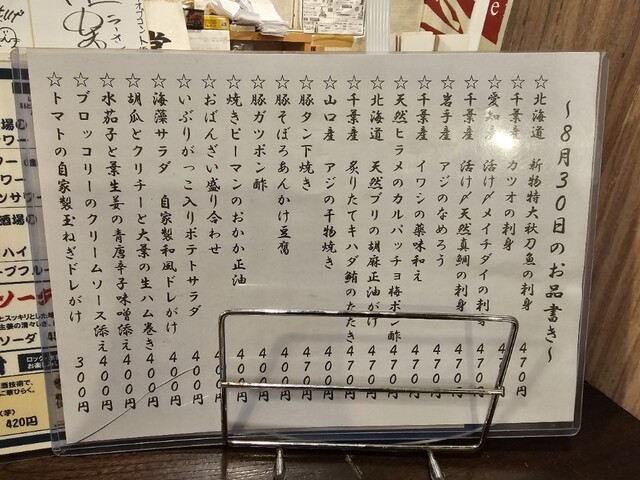 〜8月30日のお品書き〜
☆北海道 新物特大秋刀魚の刺身 470円
☆千葉産 カツオの刺身 470円
☆愛知 活け〆メイチダイの刺身 470円
☆千葉産 活け〆天然真鯛の刺身 470円
☆岩手産 アジのなめろう 470円
☆千葉産 イワシの薬味和え 400円
☆天然ヒラメのカルパッチョ梅ポン酢 470円
☆北海道 天然ブリの胡麻正油がけ 470円
☆千葉産 炙りたてキハダ鮪のたたき 470円
☆山口産 アジの干物焼き 400円
☆豚タン下焼き 470円
☆豚そぼろあんかけ豆腐 400円
☆豚ガツポン酢 400円
☆焼きピーマンのおかか正油 400円
☆おばんざい盛り合わせ 400円
☆いぶりがっこ入りポテトサラダ 400円
☆海藻サラダ 自家製和風ドレがけ 400円
☆胡瓜とクリチーと大葉の生ハム巻き 400円
☆水茄子と葉生姜の青唐辛子味噌添え 400円
☆ブロッコリーのクリームソース添え 400円
☆トマトの自家製玉ねぎドレがけ 300円
ラーメン
酒場
ワー
ハイ
ソーダ
420円